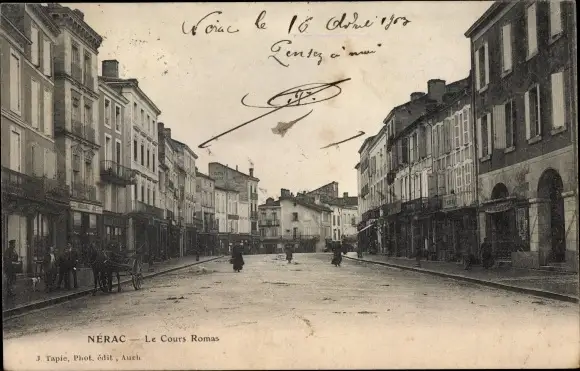 Nérac le 16 Octobre 1903
Pensez à moi
NÉRAC — Le Cours Romas
J. Tapie, Phot. édit., Auch